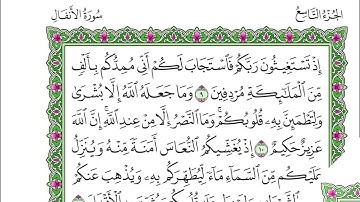 الجزء التاسع
سورة الأنفال
إِذْ تَسْتَغِيثُونَ رَبَّكُمْ فَاسْتَجَابَ لَكُمْ أَنِّي مُمِدُّكُم بِأَلْفٍ
مِّنَ الْمَلَائِكَةِ مُرْدِفِينَ ٩ وَمَا جَعَلَهُ اللَّهُ إِلَّا بُشْرَىٰ
وَلِتَطْمَئِنَّ بِهِ قُلُوبُكُمْ ۚ وَمَا النَّصْرُ إِلَّا مِنْ عِندِ اللَّهِ ۚ إِنَّ اللَّهَ
عَزِيزٌ حَكِيمٌ ١٠ إِذْ يُغَشِّيكُمُ النُّعَاسَ أَمَنَةً مِّنْهُ وَيُنَزِّلُ
عَلَيْكُم مِّنَ السَّمَاءِ مَاءً لِّيُطَهِّرَكُم بِهِ وَيُذْهِبَ عَنكُمْ